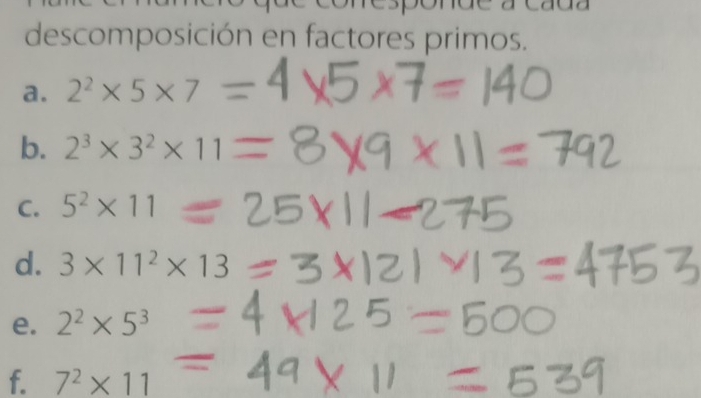 descomposición en factores primos.
a. 2² × 5 × 7 = 4 × 5 × 7 = 140
b. 2³ × 3² × 11 = 8 × 9 × 11 = 792
c. 5² × 11 = 25 × 11 = 275
d. 3 × 11² × 13 = 3 × 121 × 13 = 4753
e. 2² × 5³ = 4 × 125 = 500
f. 7² × 11 = 49 × 11 = 539